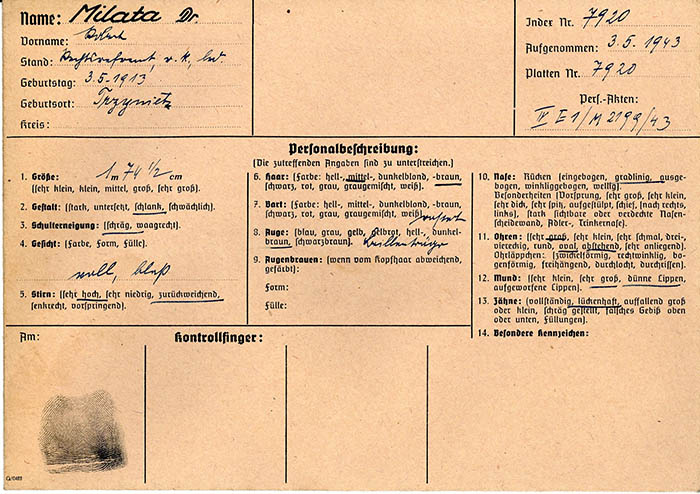 Name: Milata Dr.
Vorname:
Stand: Rechtsreferent, r. k., led.
Geburtstag: 3.5.1913
Geburtsort: Trzynietz
Kreis:
Index Nr. 7920
Aufgenommen: 3.5.1943
Platten Nr. 7920
Pers.-Akten:
IV E 1/M 2199/43
Personalbeschreibung:
(Die zutreffenden Angaben sind zu unterstreichen.)
1. Größe: 1 m 74 ½ cm
(sehr klein, klein, mittel, groß, sehr groß).
2. Gestalt: (stark, untersetzt, schlank, schwächlich).
3. Schulterneigung: (schräg, waagrecht).
4. Gesicht: (Farbe, Form, Fülle).
voll, blaß
5. Stirn: (sehr hoch, sehr niedrig, zurückweichend,
senkrecht, vorspringend).
6. Haar: (Farbe: hell-, mittel-, dunkelblond, -braun,
schwarz, rot, grau, graugemischt, weiß).
7. Bart: (Farbe: hell-, mittel-, dunkelblond, -braun,
schwarz, rot, grau, graugemischt, weiß). rasiert
8. Auge: (blau, grau, gelb, gelbrot, hell-, dunkel-
braun, schwarzbraun). Brillenträger
9. Augenbrauen: (wenn vom Kopfhaar abweichend,
gefärbt):
Form:
Fülle:
10. Nase: Rücken (eingebogen, gradlinig, ausge-
bogen, winkliggebogen, wellig).
Besonderheiten (Vorsprung, sehr groß, sehr klein,
sehr dick, sehr spitz, aufgestülpt, schief, [nach rechts,
links], stark sichtbare oder verdeckte Nasen-
scheidewand, Adler-, Trinkernase).
11. Ohren: (sehr groß, sehr klein, sehr schmal, drei-,
viereckig, rund, oval, abstehend, sehr anliegend).
Ohrläppchen: (zwickelförmig, rechtwinklig, bo-
genförmig, freihängend, durchlocht, durchrissen).
12. Mund: (sehr klein, sehr groß, dünne Lippen,
aufgeworfene Lippen).
13. Zähne: (vollständig, lückenhaft, auffallend groß
oder klein, schräg gestellt, falsches Gebiß oben
oder unten, Füllungen).
14. Besondere Kennzeichen:
Am:
Kontrollfinger: